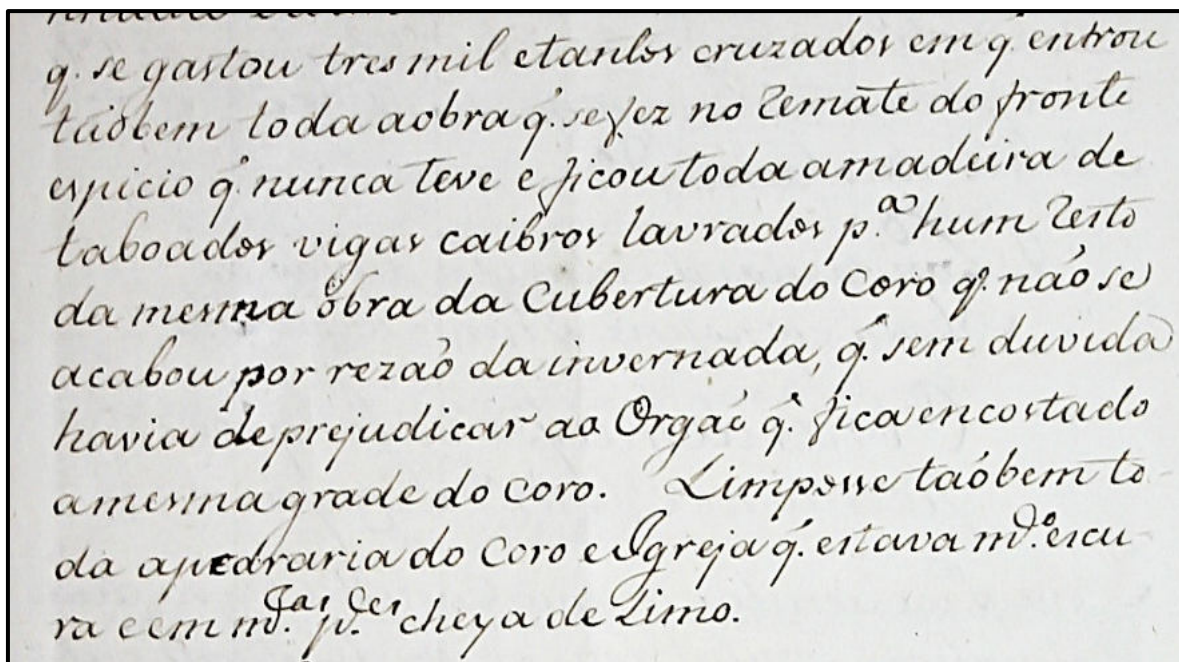 q. se gastou tres mil etantos cruzados em q. entrou
taõbem toda aobra q. sefez no Remate do fronte
espicio q. nunca teve e ficou toda amadeira de
taboados vigas caibros lavrados p.ª hum Resto
da mesma obra da Cubertura do Coro q. não se
acabou por rezaõ da invernada, q. sem duvida
havia deprejudicar ao Orgaõ q. fica encostado
amesma grade do coro. Limposse taõbem to-
da apedraria do Coro e Igreja q. estava m.to escu-
ra e em m.tas p.tes cheya de Limo.